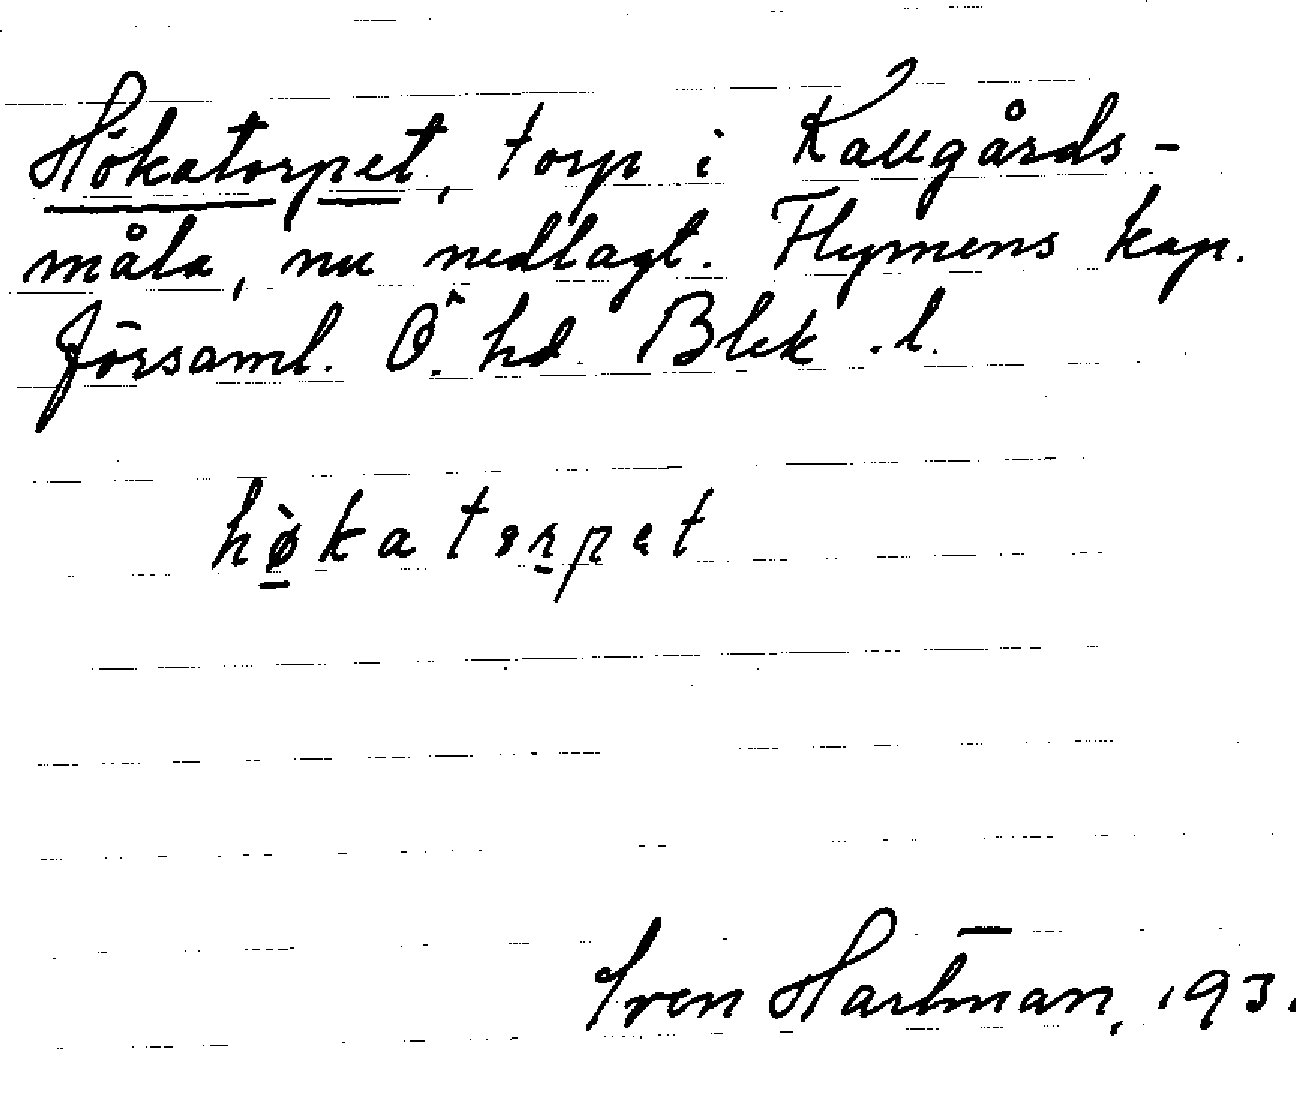 Hökatorpet, torp i Kallgårds-
måla, nu nedlagt. Flymens kap.
församl. Ö. hd Blek.l.
hø̀katorpet
Sven Hartman, 193